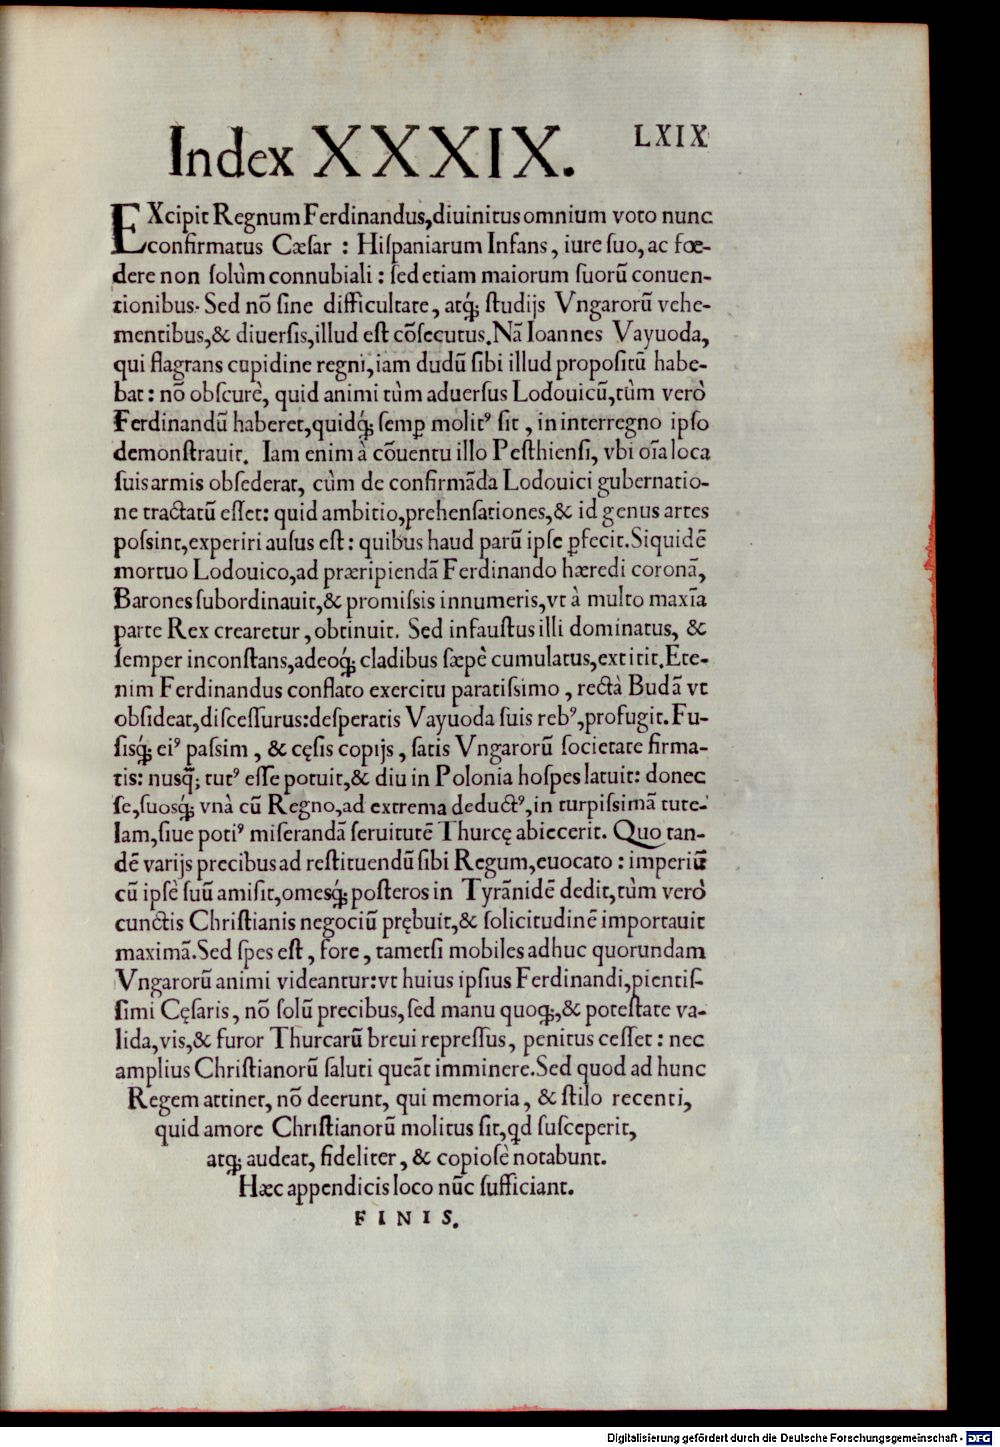 LXIX
Index XXXIX.
EXcipit Regnum Ferdinandus, diuinitus omnium voto nunc
confirmatus Cæsar : Hiſpaniarum Infans, iure ſuo, ac fœ-
dere non ſolùm connubiali : ſed etiam maiorum ſuorũ conuen-
tionibus. Sed nõ ſine difficultate, atq́; ſtudijs Vngarorũ vehe-
mentibus, & diuerſis, illud eſt cõſecutus. Nã Ioannes Vayuoda,
qui flagrans cupidine regni, iam dudũ ſibi illud propoſitũ habe-
bat : nõ obſcurè, quid animi tùm aduerſus Lodouicũ, tùm verò
Ferdinandũ haberet, quidq́; ſemꝑ molitꝰ ſit, in interregno ipſo
demonſtrauit. Iam enim à cõuentu illo Peſthienſi, vbi oĩa loca
ſuis armis obſederat, cùm de confirmãda Lodouici gubernatio-
ne tractatũ eſſet: quid ambitio, prehenſationes, & id genus artes
poſsint, experiri auſus eſt : quibus haud parũ ipſe ꝑfecit. Siquidẽ
mortuo Lodouico, ad præripiendã Ferdinando hæredi coronã,
Barones ſubordinauit, & promiſsis innumeris, vt à multo maxĩa
parte Rex crearetur, obtinuit. Sed infauſtus illi dominatus, &
ſemper inconſtans, adeoq́; cladibus ſæpè cumulatus, extitit. Ete-
nim Ferdinandus conflato exercitu paratiſsimo, rectà Budã vt
obſideat, diſceſſurus: deſperatis Vayuoda ſuis rebꝰ, profugit. Fu-
ſisq́; eiꝰ paſsim, & cęſis copijs, ſatis Vngarorũ ſocietate firma-
tis: nusq̃; tutꝰ eſſe potuit, & diu in Polonia hoſpes latuit: donec
ſe, ſuosq́; vnà cũ Regno, ad extrema deductꝰ, in turpiſsimã tute-
lam, ſiue potiꝰ miſerandã ſeruitutẽ Thurcę abiecerit. Quo tan-
dẽ varijs precibus ad reſtituendũ ſibi Regum, euocato : imperiũ
cũ ipſè ſuũ amiſit, omesq́; poſteros in Tyrãnidẽ dedit, tùm verò
cunctis Chriſtianis negociũ prębuit, & ſolicitudinẽ importauit
maximã. Sed ſpes eſt, fore, tametſi mobiles adhuc quorundam
Vngarorũ animi videantur: vt huius ipſius Ferdinandi, pientiſ-
ſimi Cęſaris, nõ ſolũ precibus, ſed manu quoq́;, & poteſtate va-
lida, vis, & furor Thurcarũ breui repreſſus, penitus ceſſet : nec
amplius Chriſtianorũ ſaluti queãt imminere. Sed quod ad hunc
Regem attinet, nõ deerunt, qui memoria, & ſtilo recenti,
quid amore Chriſtianorũ molitus ſit, qd ſuſceperit,
atq́; audeat, fideliter, & copioſè notabunt.
Hæc appendicis loco nũc ſufficiant.
FINIS.
Digitalisierung gefördert durch die Deutsche Forschungsgemeinschaft - DFG